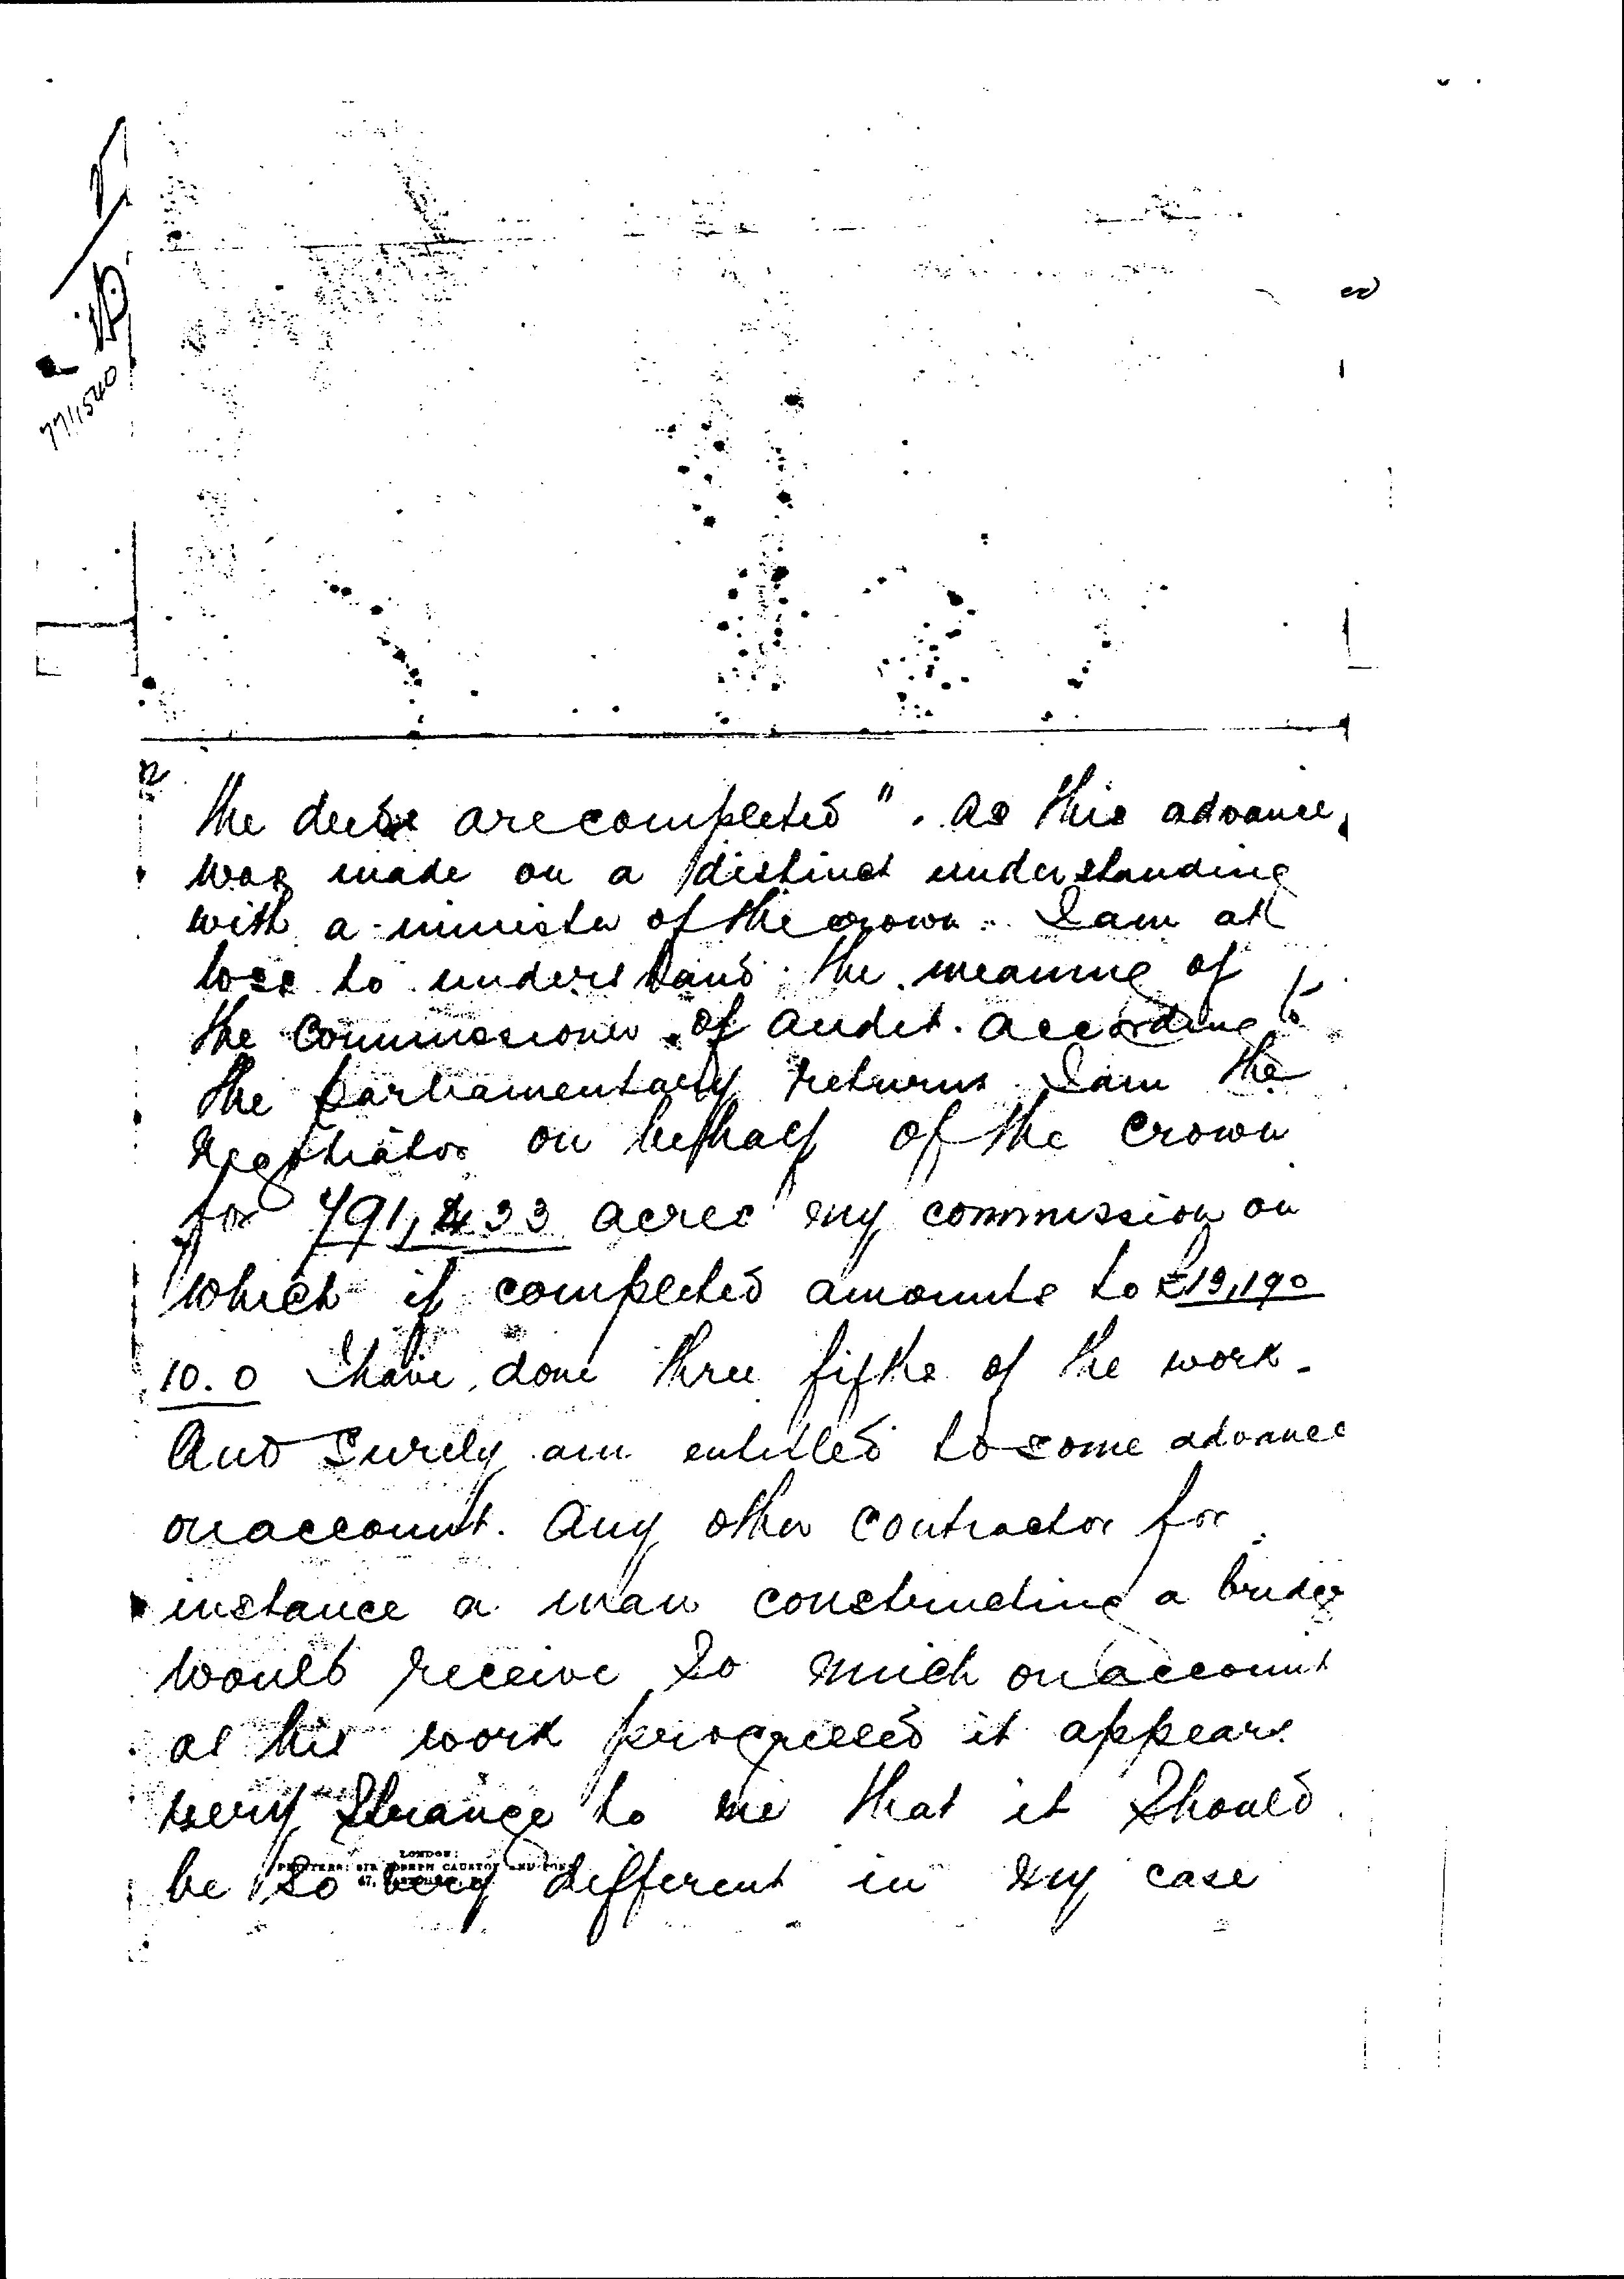 77/1540
the deeds are completed". As this advance
was made on a distinct understanding
with a minister of the crown. I am at
loss to understand the meaning of
the Commissioner of Audit. according to
the parliamentary returns I am the
Negotiator on behalf of the Crown
for 791,433 acres my commission on
which if completed amounts to £13,190
10.0 I have done three fifths of the work.
And surely am entitled to some advance
on account. Any other contractor for
instance a man constructing a bridge
would receive so much on account
as his work progressed it appears
very strange to me that it should
LONDON:
PRINTERS: SIR JOSEPH CAUSTON AND SONS
be so very different in my case